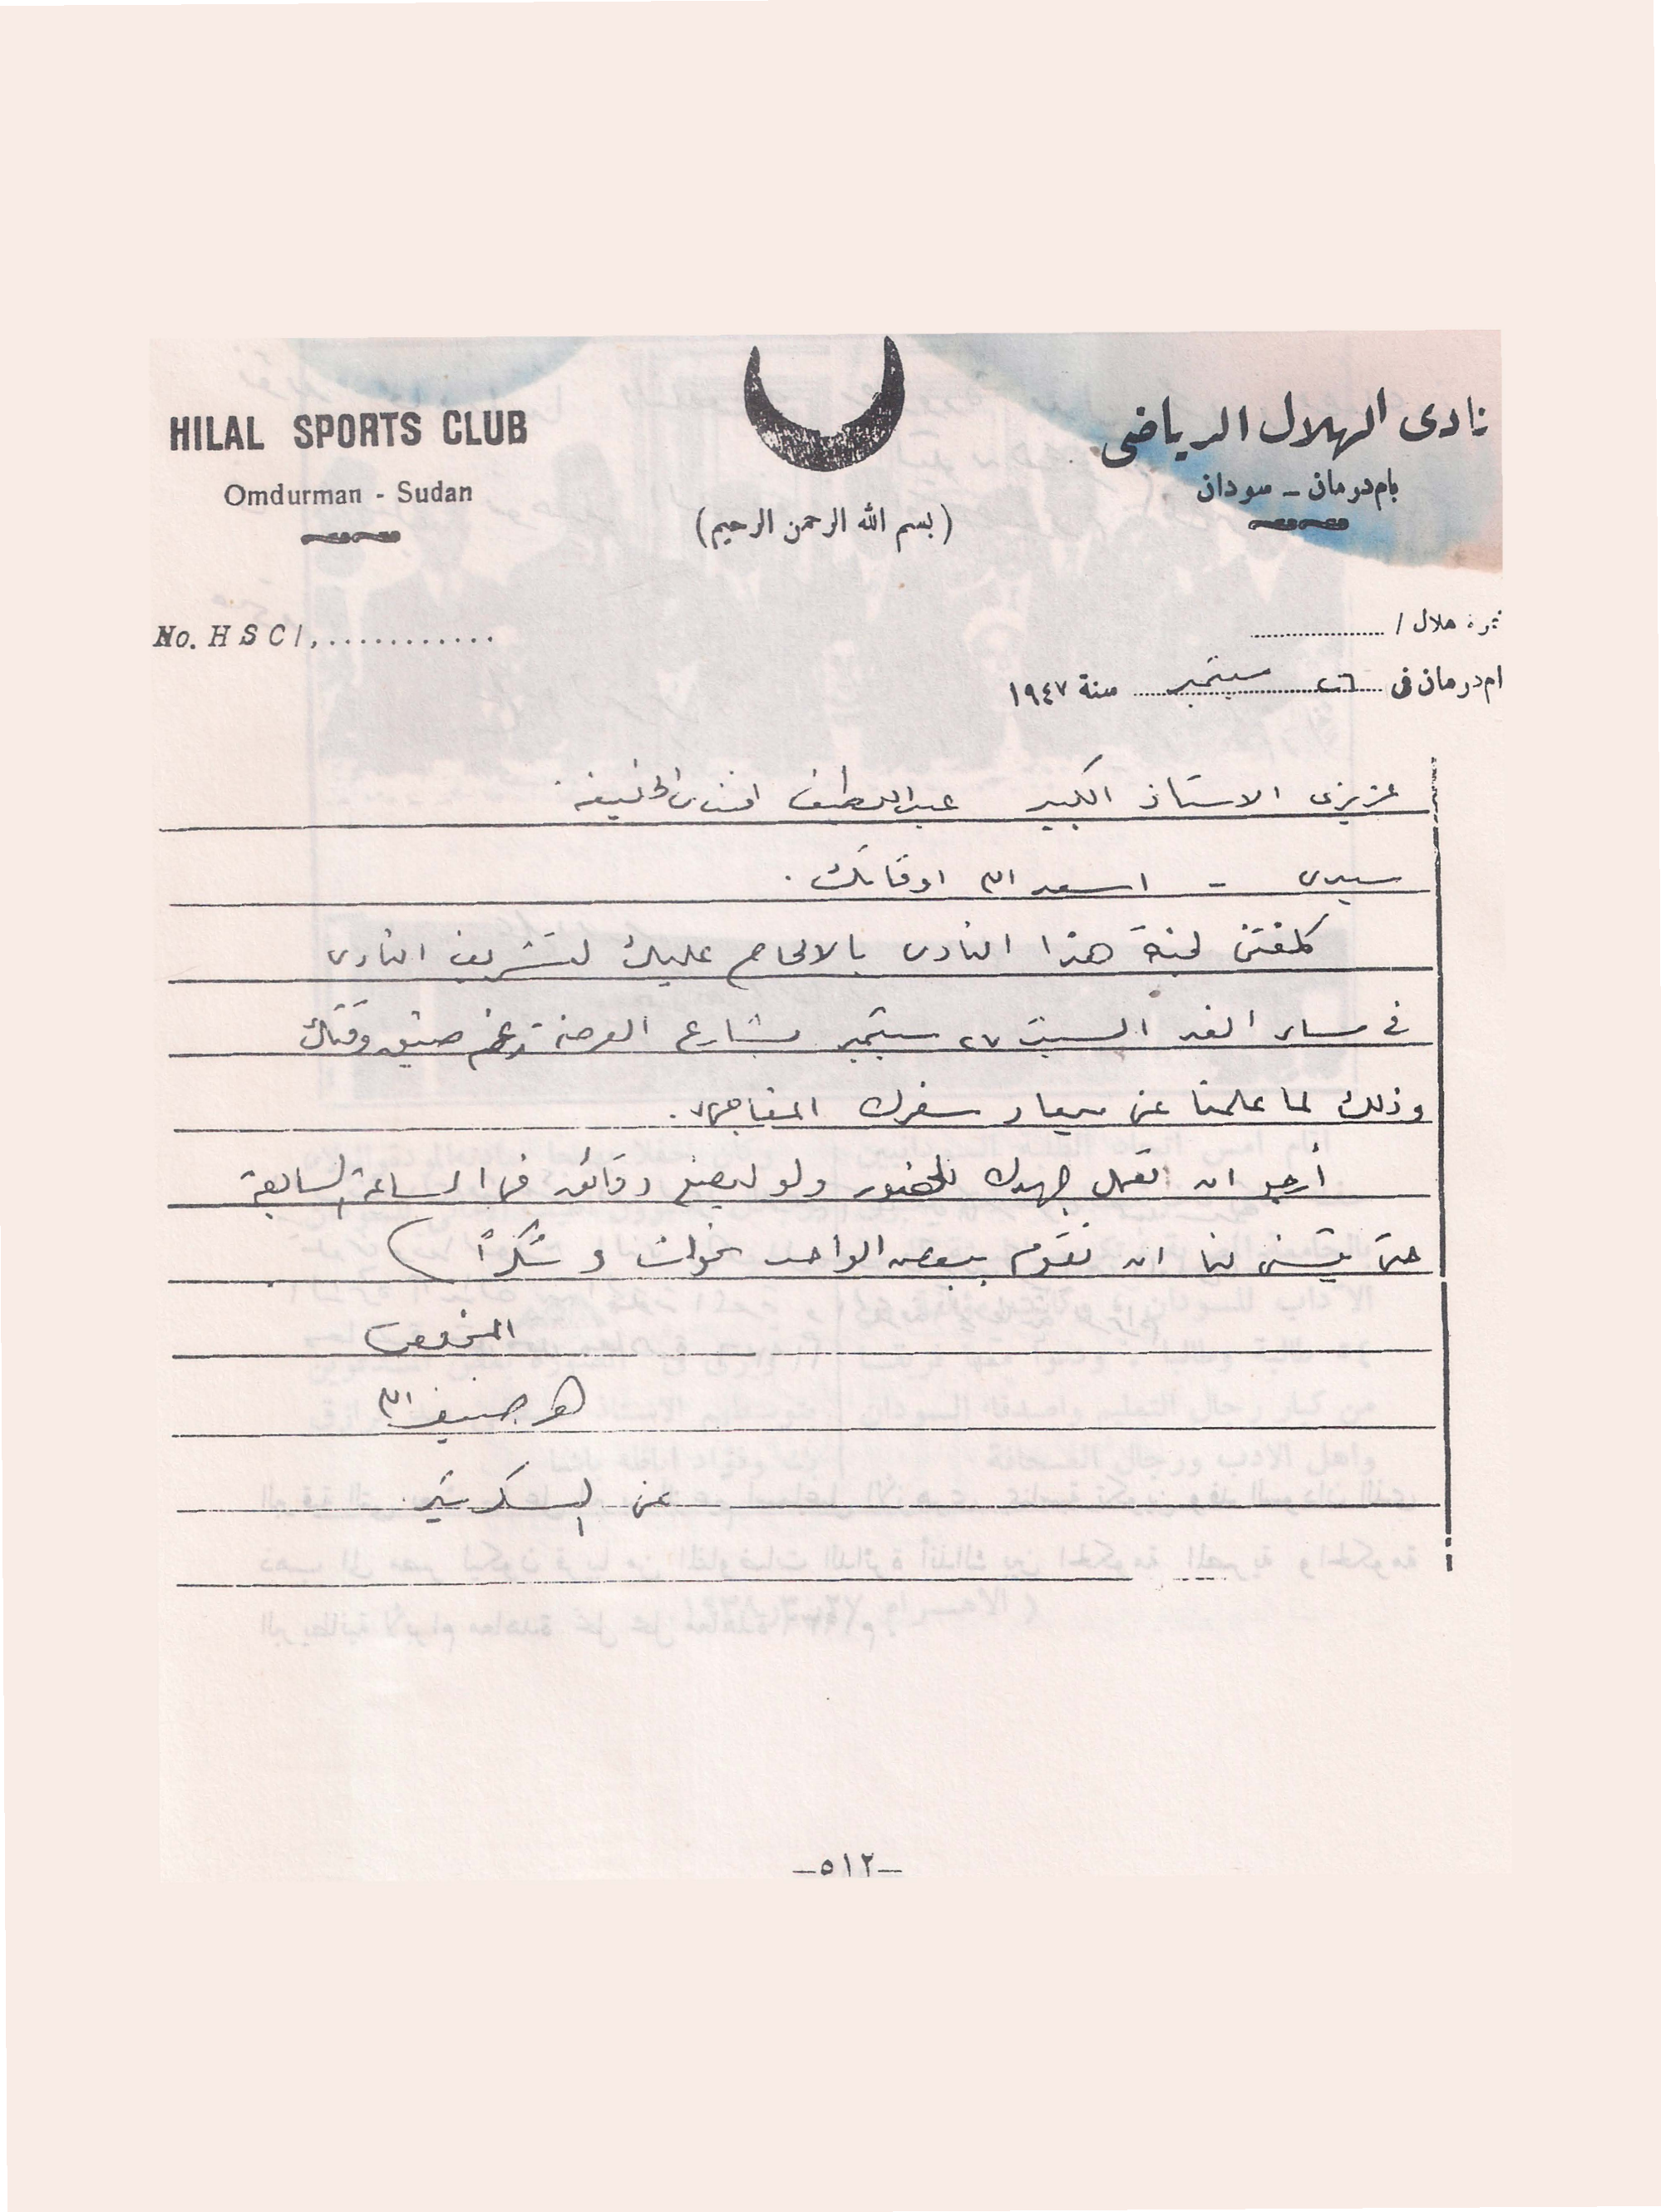 HILAL SPORTS CLUB
Omdurman - Sudan
نادى الهلال الرياضى
بام درمان - سودان
(بسم الله الرحمن الرحيم)
No. H S C /, ............
نمرة هلال / ..................
ام درمان فى ٢٦ سبتمبر سنة ١٩٤٧
عزيزى الاستاذ الكبير عبد اللطيف افندى الخليفة
سيدى - اسعد الله اوقاتك .
كلفتنى لجنة هذا النادى بالالحاح عليك لتشريف النادى
فى مساء الغد السبت ٢٧ سبتمبر بشارع العرضة رغم ضيق وقتك
وذلك لما علمنا عن ميعاد سفرك المفاجىء .
أرجو ان تعمل جهدك للحضور ولو لبضع دقائق فى الساعة السابعة
حتى يتسنى لنا ان نقوم ببعض الواجب نحوك و شكراً )
المخلص
ضيف الله
عن السكرتير
-٥١٢-